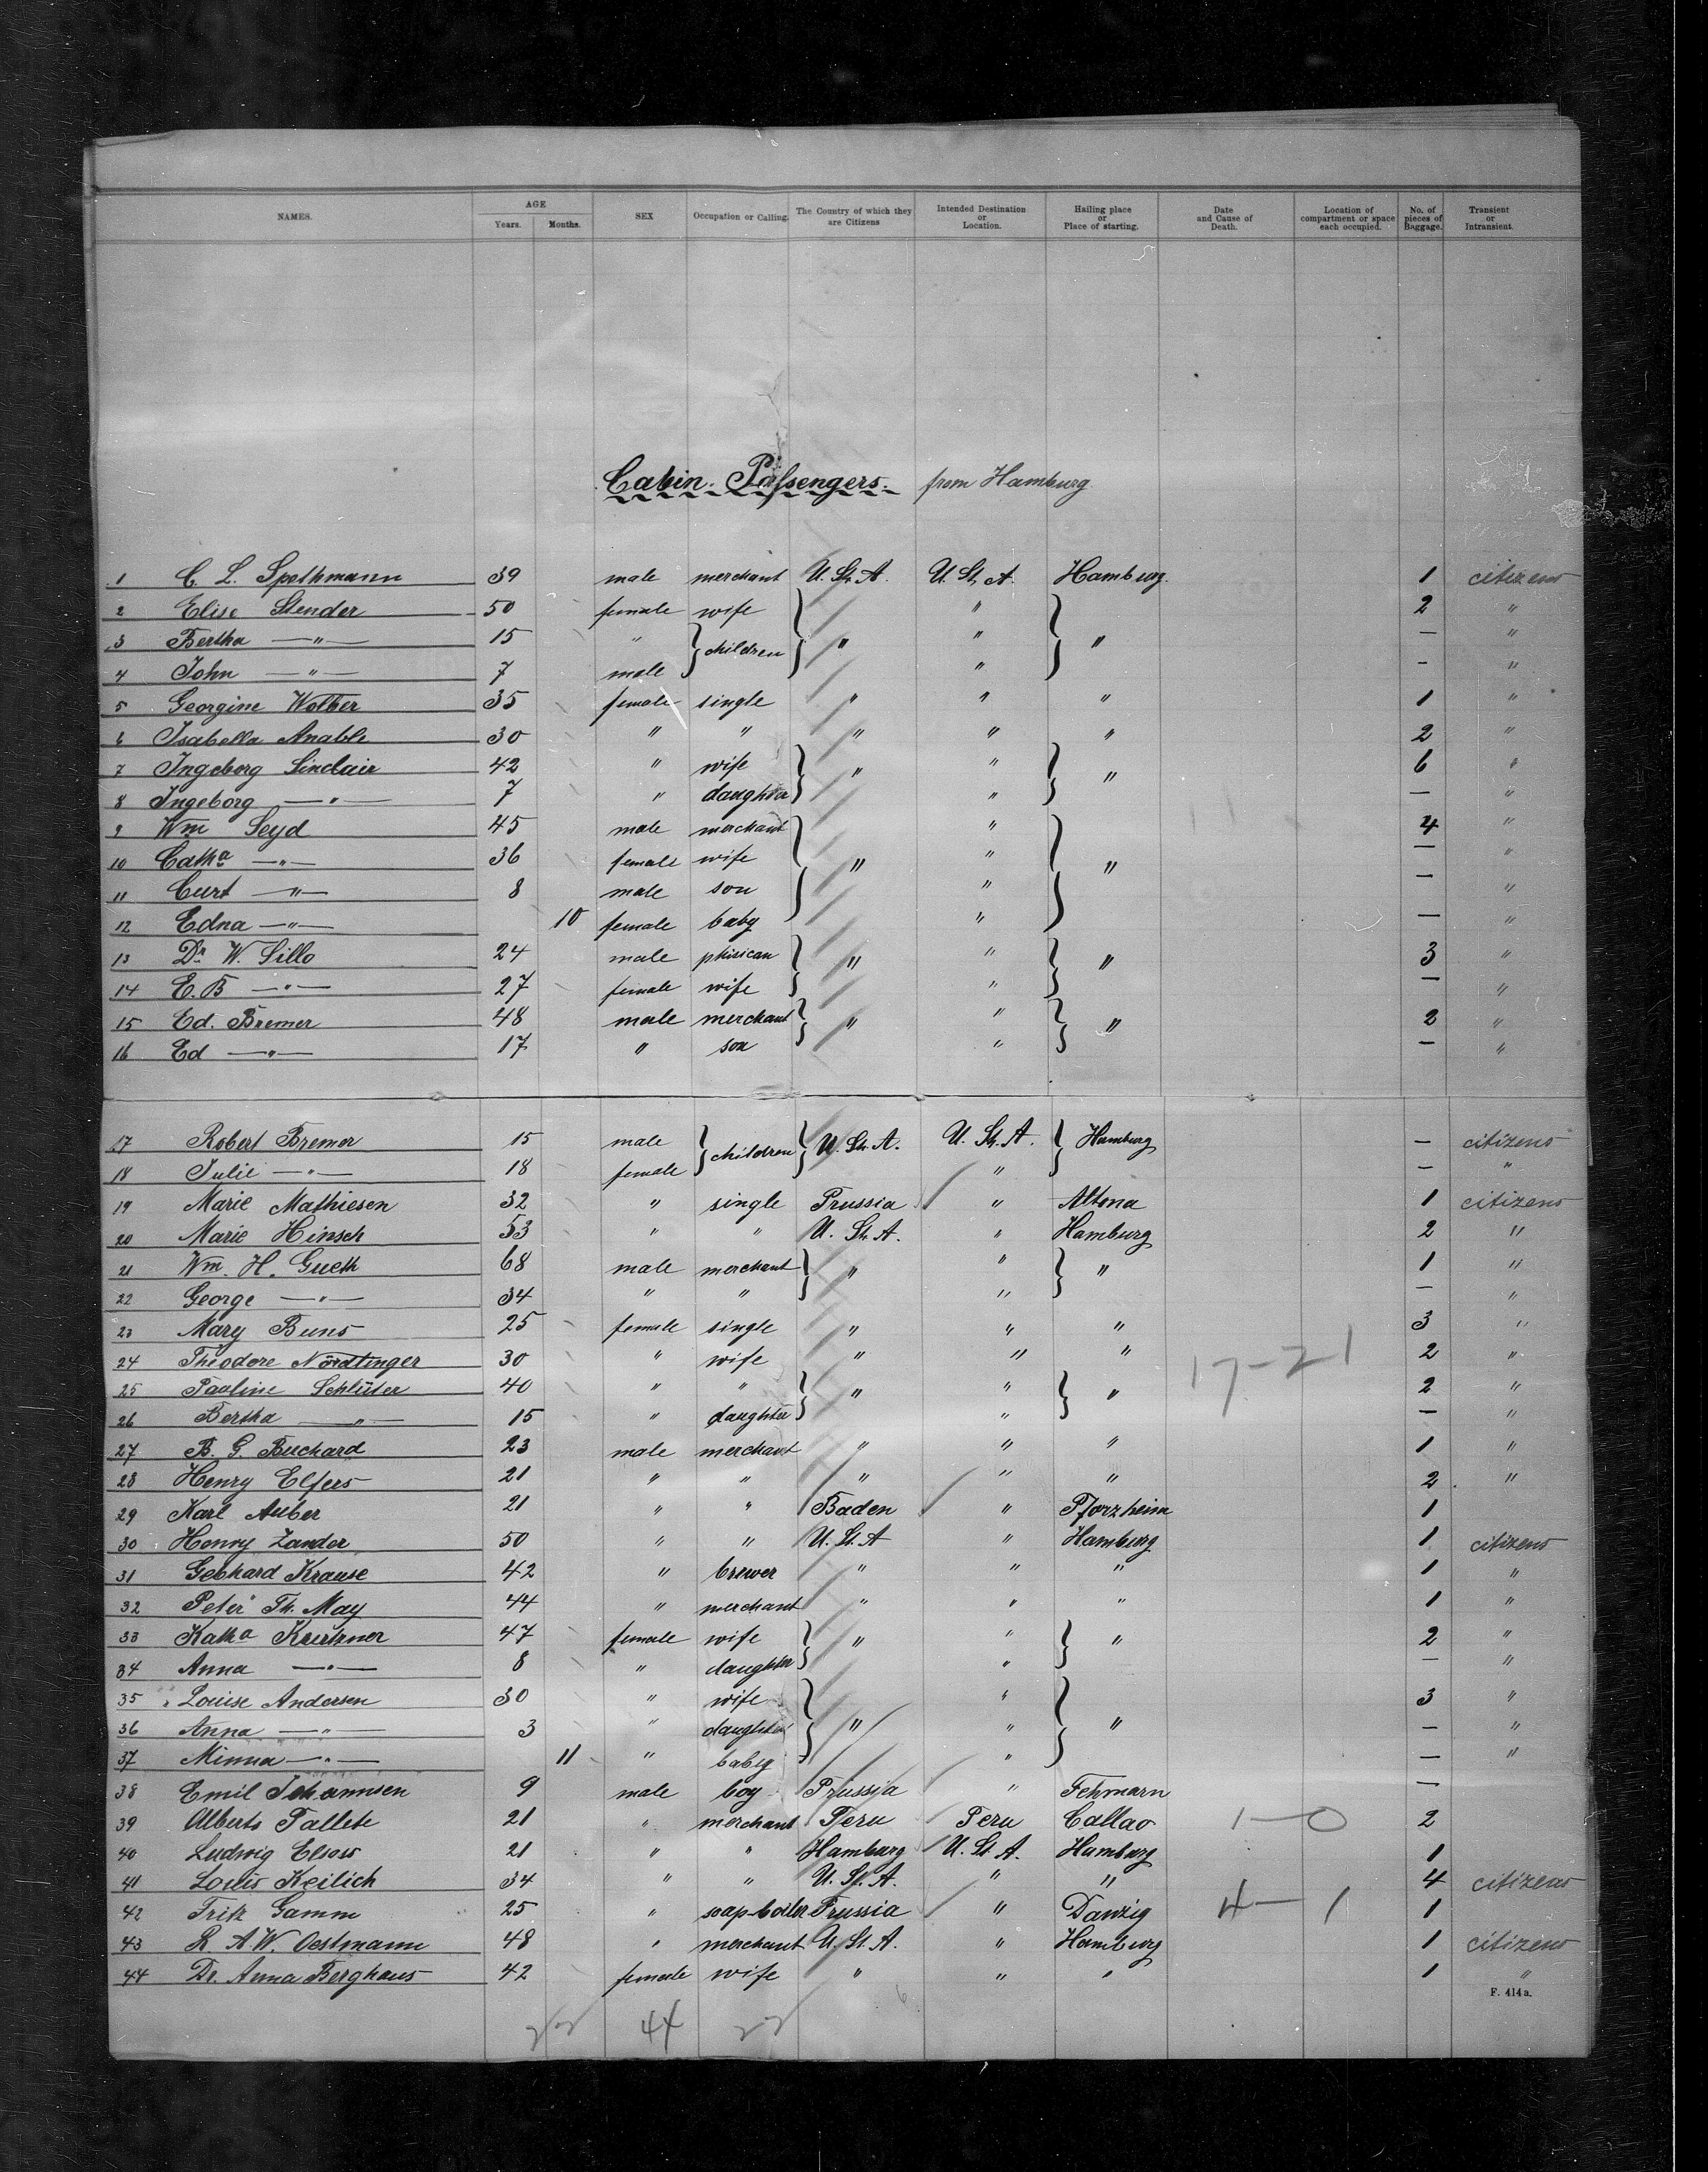 NAMES. AGE Years. Months. SEX Occupation or Calling. The Country of which they are Citizens Intended Destination or Location. Hailing place or Place of starting. Date and Cause of Death. Location of compartment or space each occupied. No. of pieces of Baggage. Transient or Intransient.
Cabin Passengers. from Hamburg
1 C. L. Spethmann 39 male merchant U. St. A. U. St. A. Hamburg. 1 citizens
2 Elise Stender 50 female wife " 2 "
3 Bertha —"— 15 " } children " " " — "
4 John —"— 7 male " — "
5 Georgine Wolber 35 female single " " " 1 "
6 Isabella Anable 30 " " " " " 2 "
7 Ingeborg Sinclair 42 " wife " " " 6 "
8 Ingeborg —"— 7 " daughter " — "
9 Wm Seyd 45 male merchant " 4 "
10 Catha —"— 36 female wife " " " — "
11 Curt —"— 8 male son " — "
12 Edna —"— 10 female baby " — "
13 Dr. W. Sillo 24 male phisican " " " 3 "
14 E. B —"— 27 female wife " — "
15 Ed. Bremer 48 male merchant " " " 2 "
16 Ed —"— 17 " son " — "
17 Robert Bremer 15 male } children U. St. A. U. St. A. Hamburg — citizens
18 Julie —"— 18 female " — "
19 Marie Mathiesen 32 " single Prussia " Altona 1 citizens
20 Marie Hinsch 53 " " U. St. A. " Hamburg 2 "
21 Wm. H. Gueth 68 male merchant " " " 1 "
22 George —"— 34 " " " — "
23 Mary Buns 25 female single " " " 3 "
24 Theodore Nördlinger 30 " wife " " " 17–21 2 "
25 Pauline Schlüter 40 " " " " " 2 "
26 Bertha —"— 15 " daughter " — "
27 B. G. Buchard 23 male merchant " " " 1 "
28 Henry Elfers 21 " " " " " 2 "
29 Karl Auber 21 " " Baden " Pforzheim 1
30 Henry Zander 50 " " U. St. A " Hamburg 1 citizens
31 Gebhard Krause 42 " brewer " " " 1 "
32 Peter Th. May 44 " merchant " " " 1 "
33 Katha Kurtzner 47 female wife " " " 2 "
34 Anna —"— 8 " daughter " — "
35 Louise Andersen 30 " wife " 3 "
36 Anna —"— 3 " daughter " " " — "
37 Minna —"— 11 " baby " — "
38 Emil Johannsen 9 male boy Prussia " Fehmarn —
39 Alberto Pallete 21 " merchant Peru Peru Callao 1–0 2
40 Ludwig Elsow 21 " " Hamburg U. St. A. Hamburg 1
41 Louis Keilich 34 " " U. St. A. " " 4 citizens
42 Fritz Gamm 25 " soap-boiler Prussia " Danzig 4–1 1
43 L. A. W. Oestmann 48 " merchant U. St. A. " Hamburg 1 citizens
44 Dr. Anna Berghaus 42 female wife " " " 1 "
F. 414 a.
22 44 22